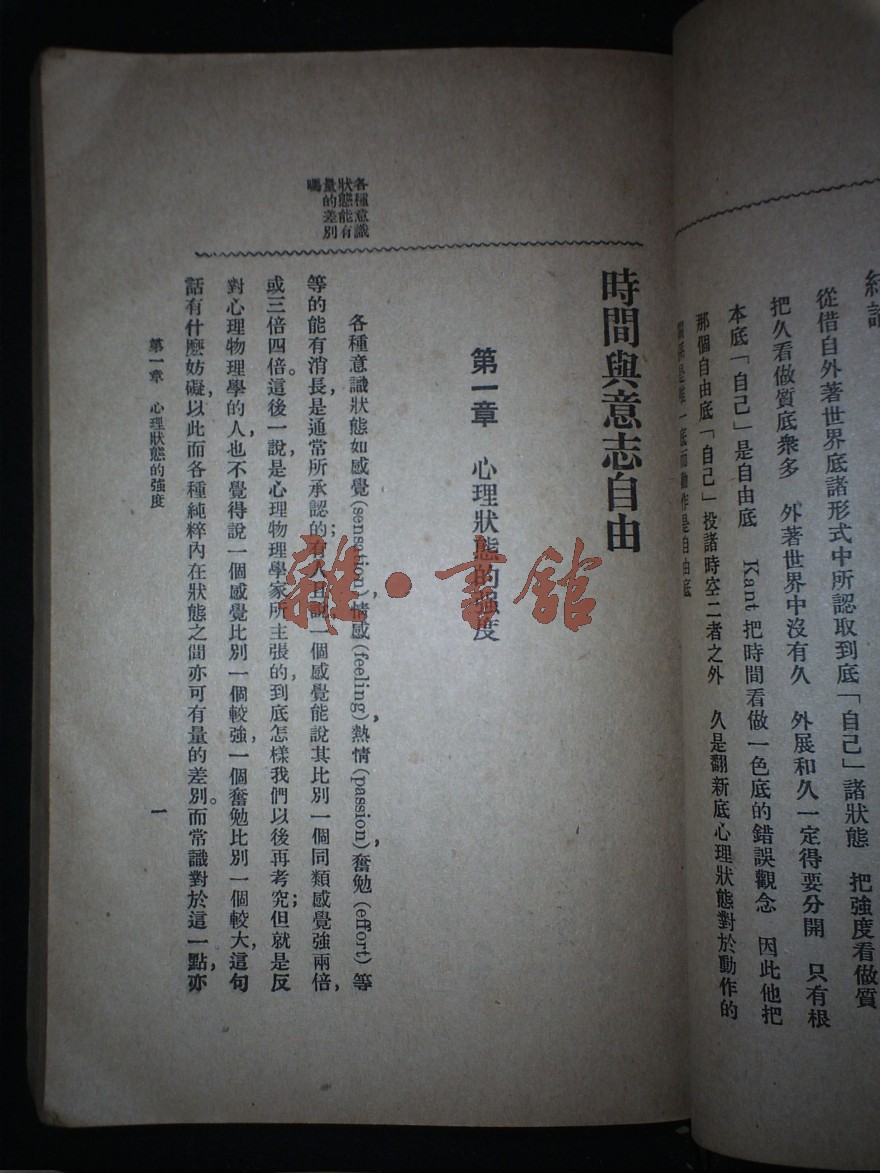 從借自外著世界底諸形式中所認取到底「自己」諸狀態　把強度看做質
把久看做質底衆多　外著世界中沒有久　外展和久一定得要分開　只有根
本底「自己」是自由底　Kant 把時間看做一色底的錯誤觀念　因此他把
那個自由底「自己」投諸時空二者之外　久是翻新底心理狀態對於動作的
關係是唯一底而動作是自由底
時間與意志自由
第一章　心理狀態的強度
各種意識
狀態能有
量的差別
嗎
各種意識狀態如感覺(sensation),情感(feeling),熱情(passion),奮勉(effort)等
等的能有消長,是通常所承認的;有人且說一個感覺能說其比別一個同類感覺強兩倍,
或三倍四倍。這後一說,是心理物理學家所主張的,到底怎樣我們以後再考究;但就是反
對心理物理學的人,也不覺得說一個感覺比別一個較強,一個奮勉比別一個較大,這句
話有什麼妨礙,以此而各種純粹內在狀態之間亦可有量的差別。而常識對於這一點,亦
第一章　心理狀態的強度
一
雜·書館